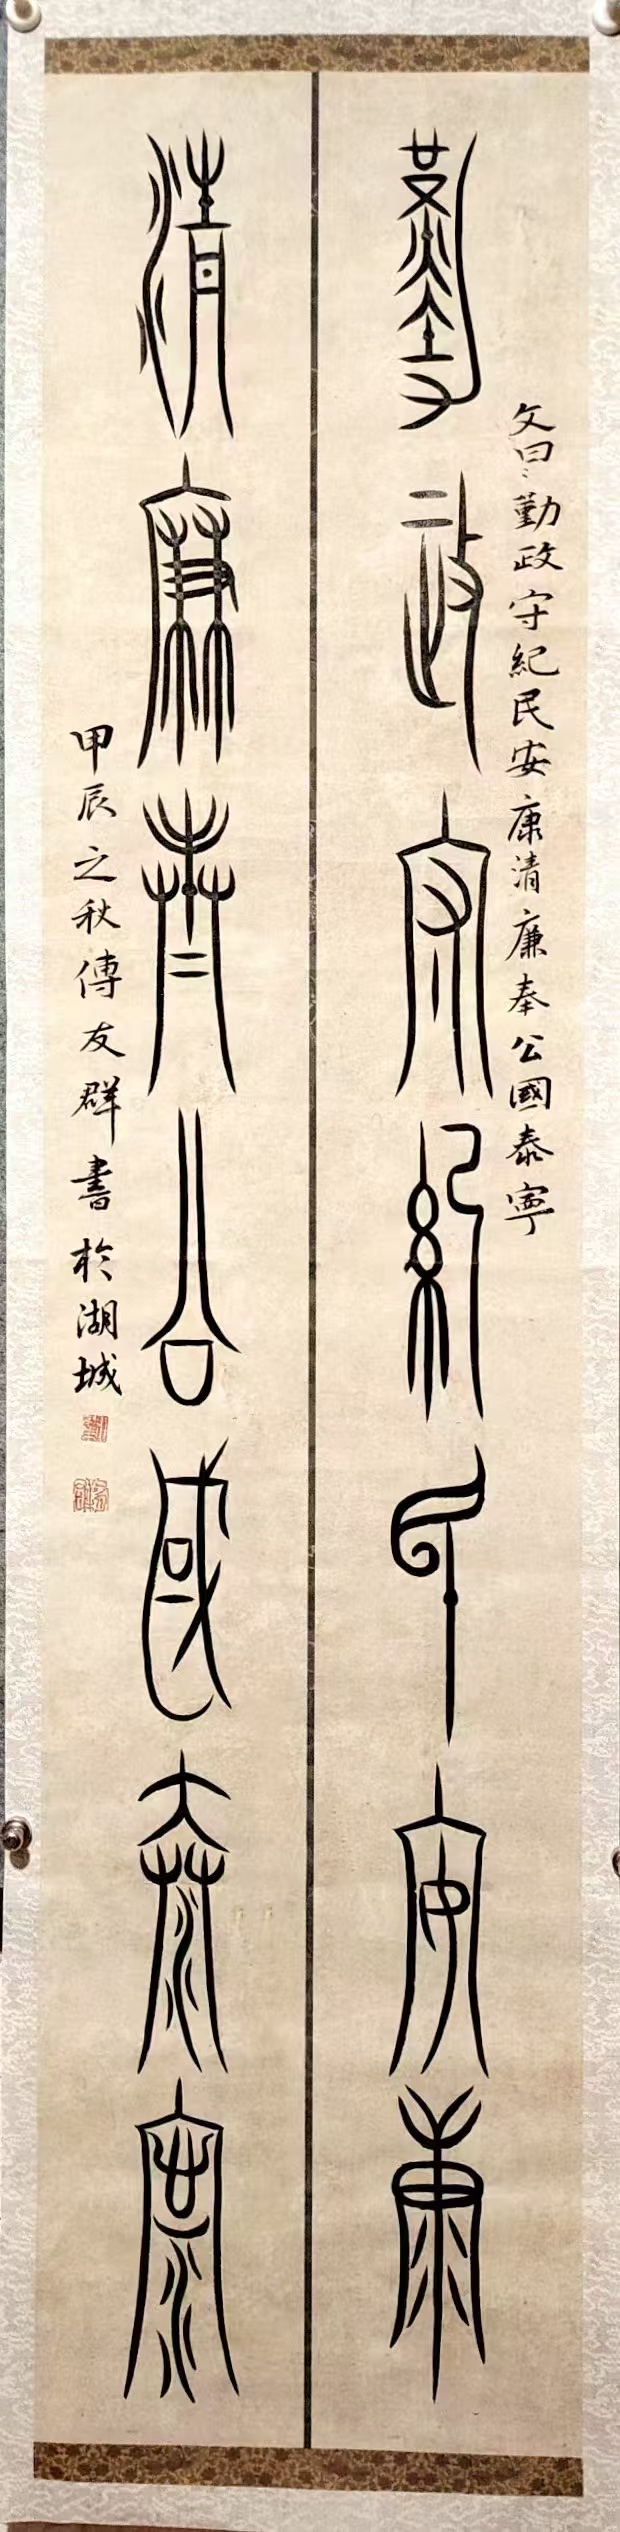 文曰：勤政守紀民安康清廉奉公國泰寧
勤政守紀民安康
清廉奉公國泰寧
甲辰之秋傅友群書於湖城